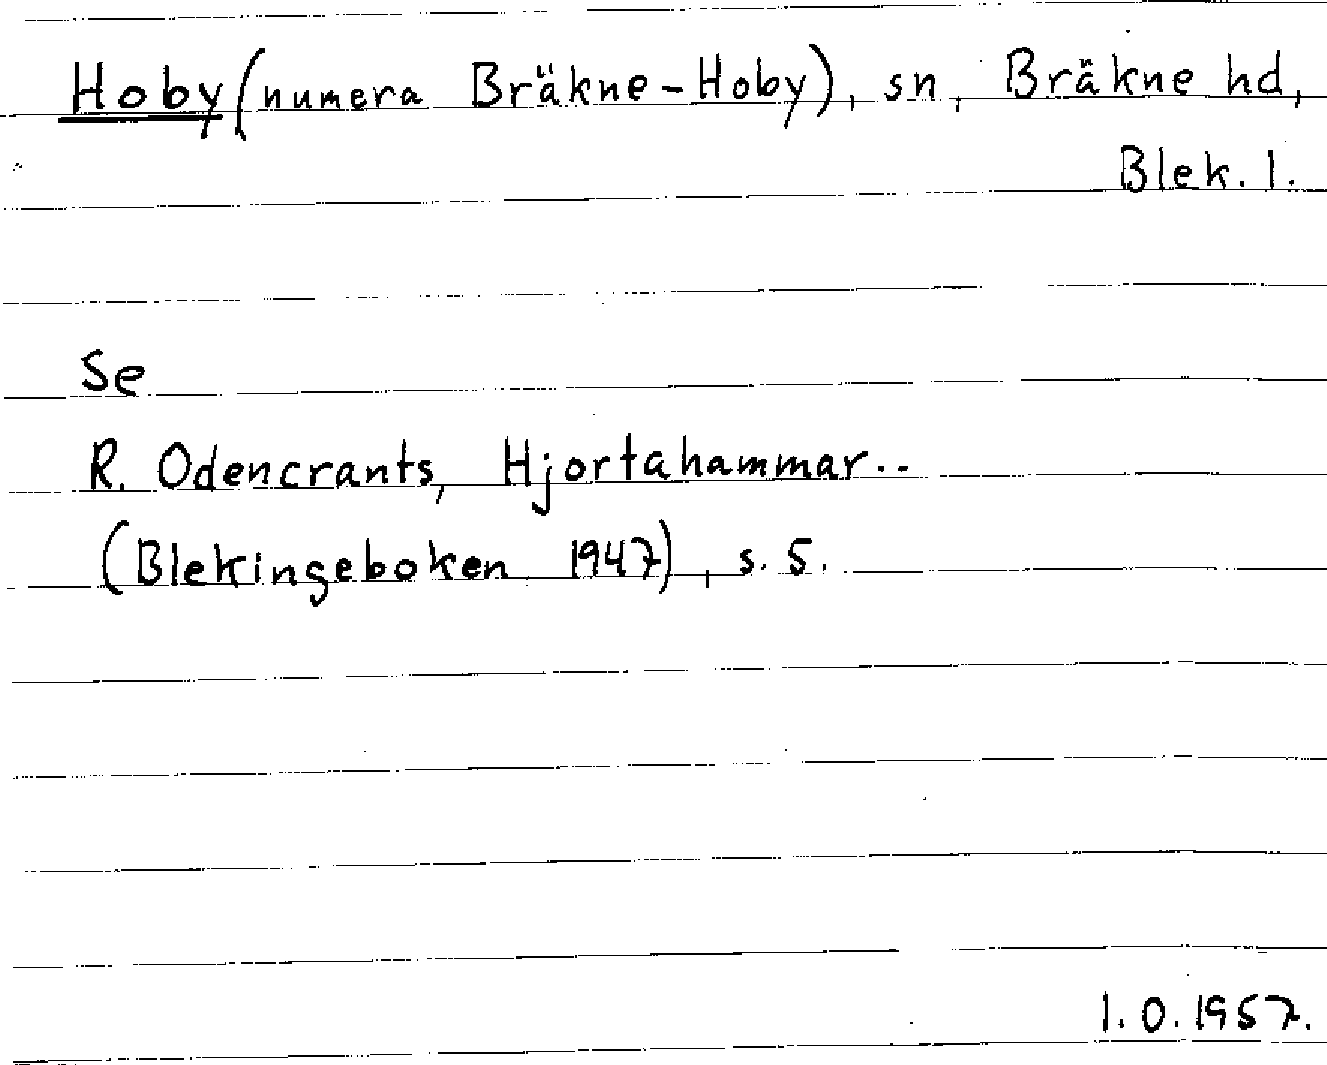 Hoby (numera Bräkne-Hoby), sn, Bräkne hd,
Blek. l.
Se
R. Odencrants, Hjortahammar..
(Blekingeboken 1947), s. 5.
I.O. 1957.